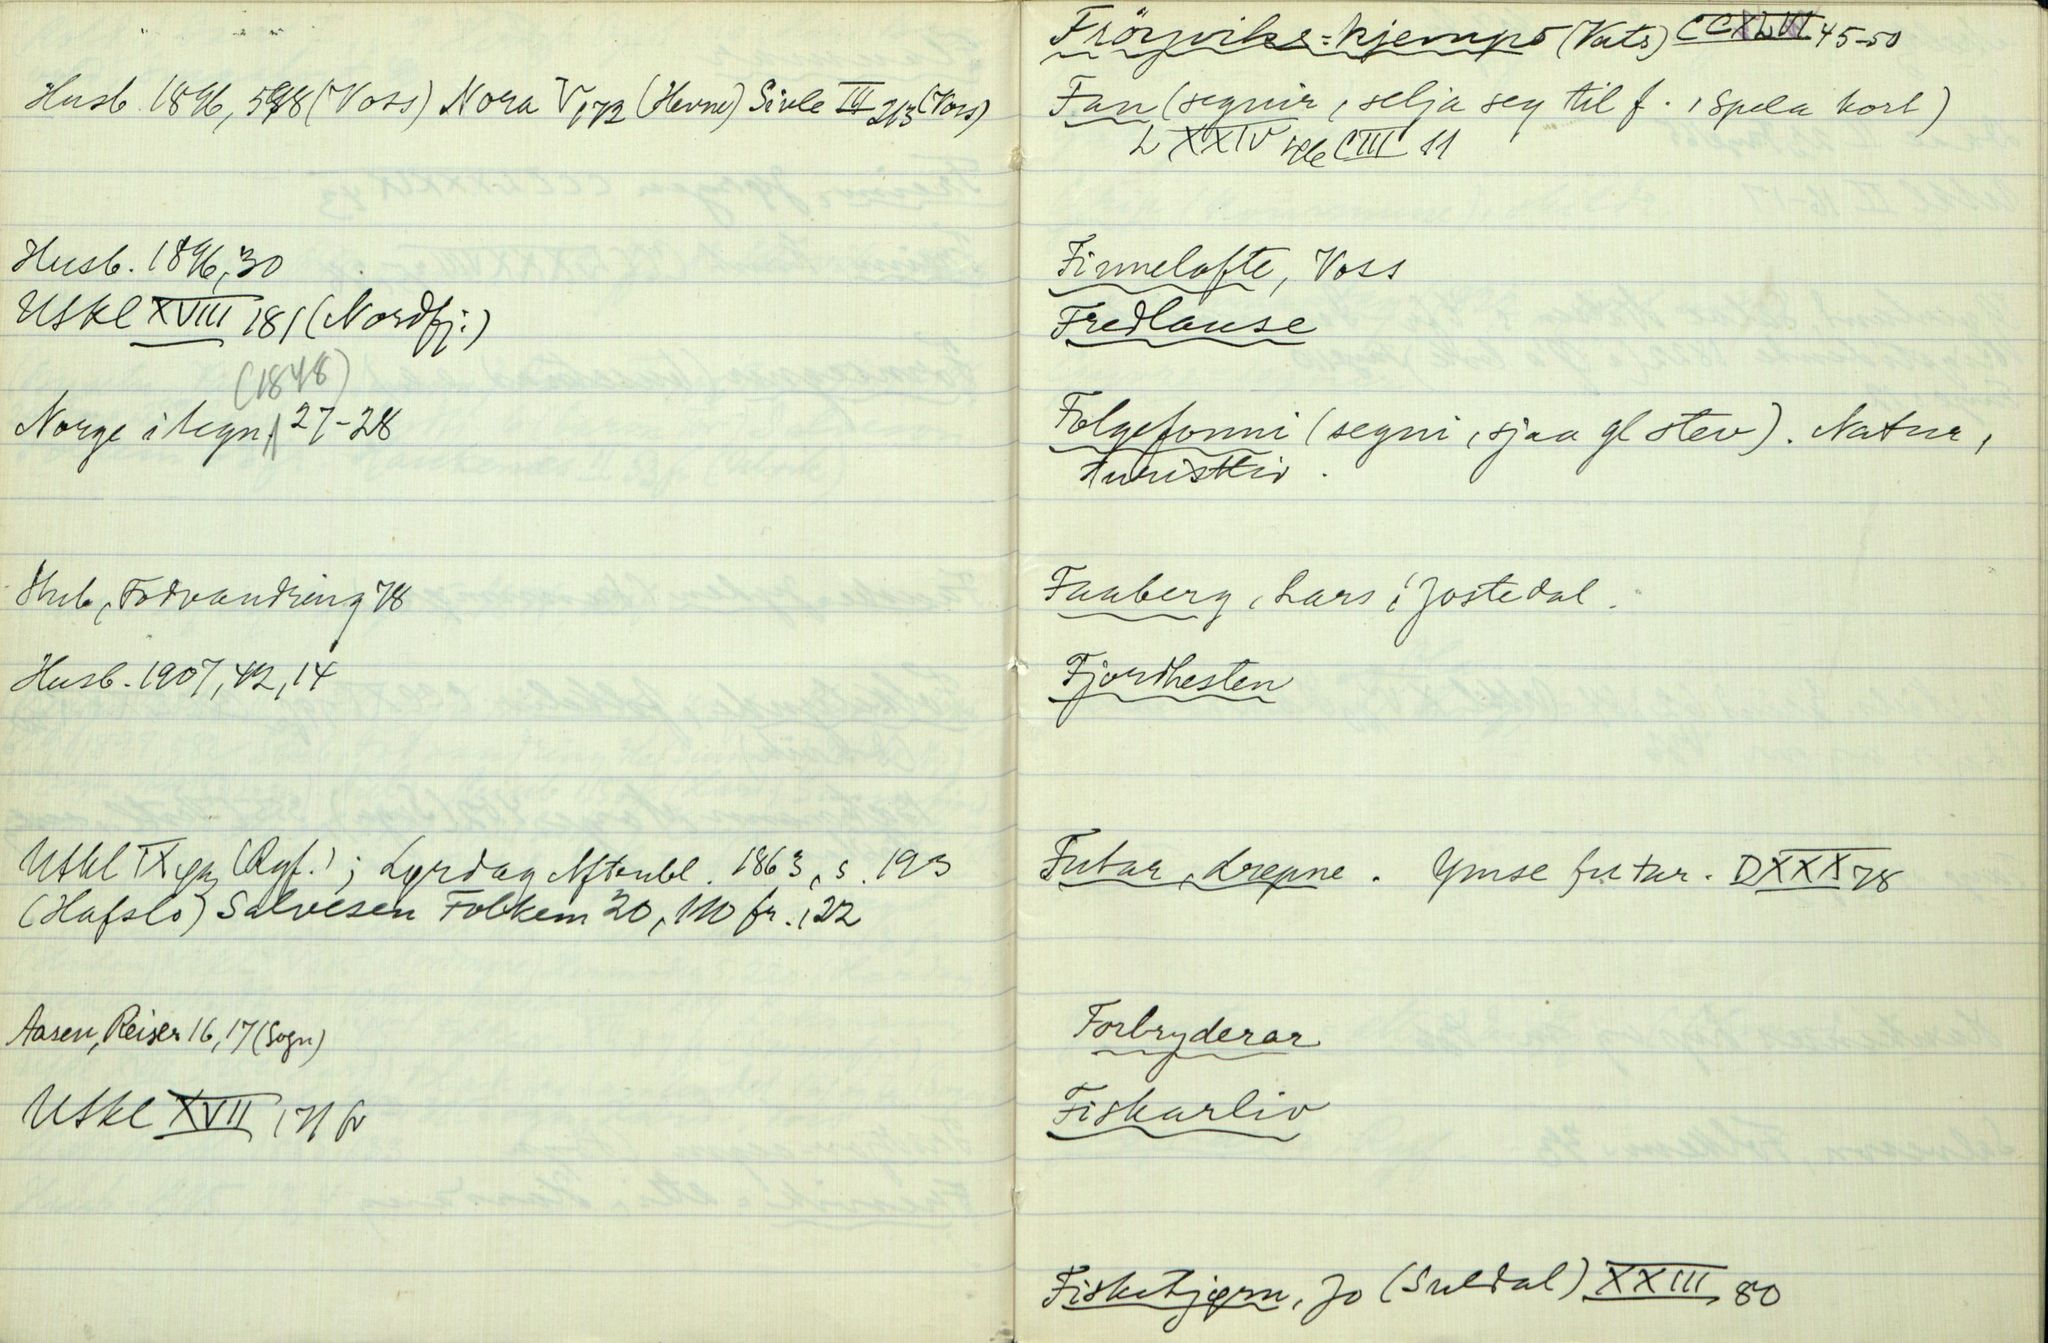 " " "
Husb. 1896, 598 (Voss) Nora V, 172 (Hevne) Sivle III 213 (Voss)
Husb. 1896, 30
Utkl XVIII 181 (Nordfj.)
(1848)
Norge i tegn. 27-28
Hub, Fodvandring 78
Husb. 1907, 42, 14
Utkl IX (Ryf.); Lyrdag Aftenbl. 1863, s. 193
(Hafslo) Salvesen Folkem 20, 110 fr., 22
Aasen, Reiser 16, 17 (Sogn)
Utkl XVII 171 fr
Fröyviks-kjempo (Vats) CCXLVI 45-50
Fan (segnir, selja seg til f., spela kort)
LXXIV CIII 11
Finnelofte, Voss
Fredlause
Folgefonni (segni, sjaa gl stev). Natur,
turistliv.
Faaberg, Lars i Jostedal.
Fjordhesten
Futar, drepne. Ymse futar. DXXX 78
Forbryderar
Fiskarliv
Fisketjørn, Jo (Suldal) XXIII 80